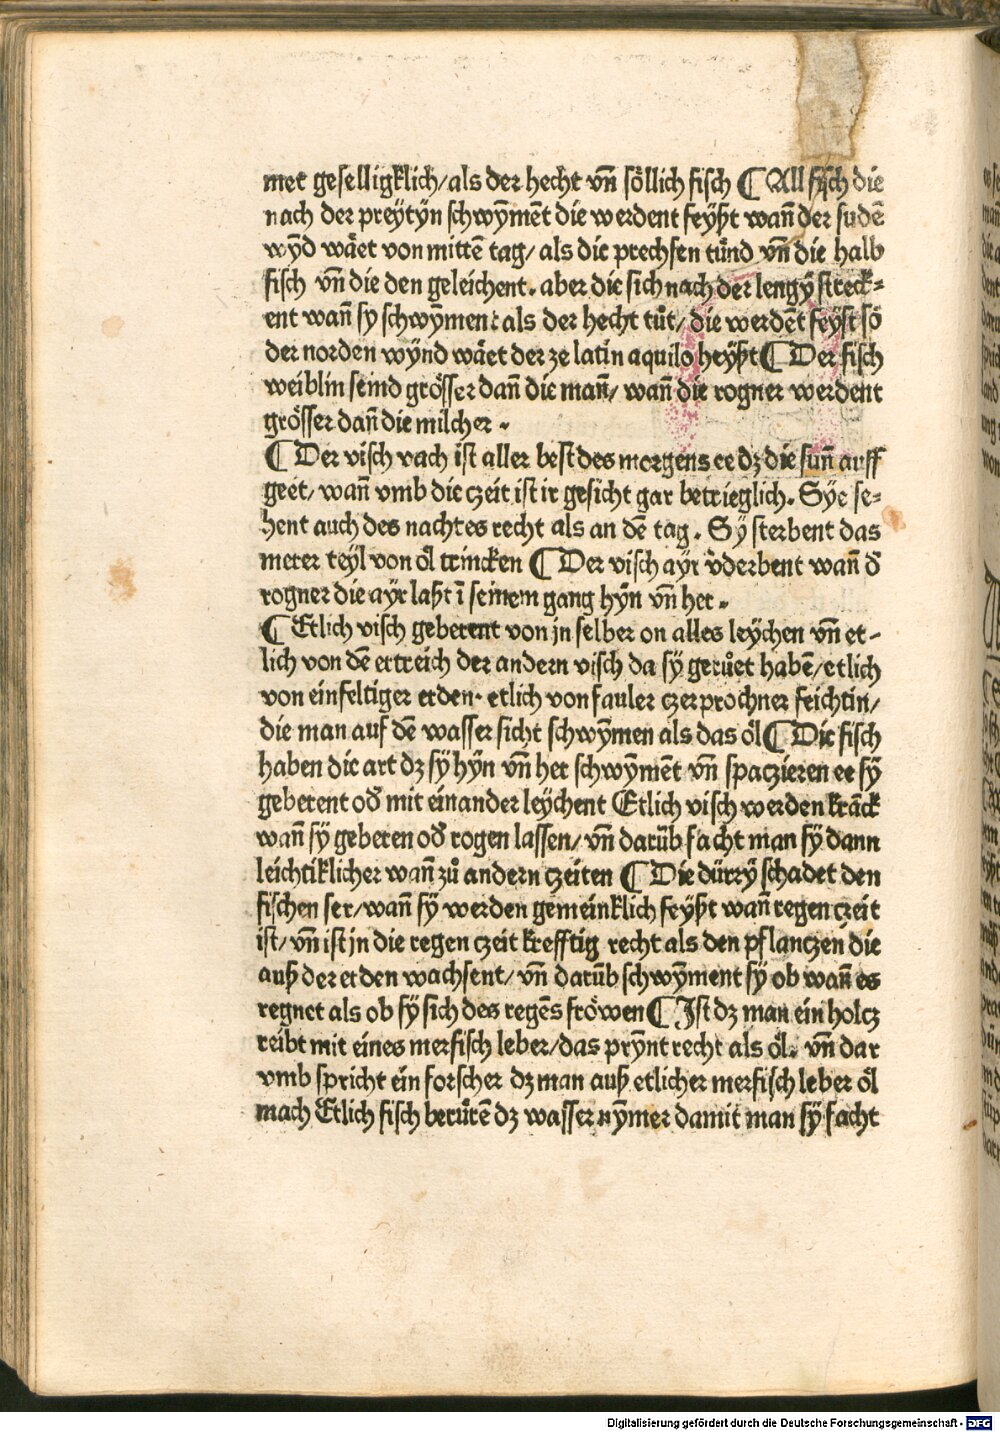 met geselligklich/als der hecht vn̄ söllich fisch ¶ All fisch die
nach der preÿtÿn schwÿ̄ment die werdent feyßt wan̄ der sudē
wȳd wäet von mittē tag/ als die prechsen tůnd vn̄ die halb
fisch vn̄ die den geleichent. aber die sich nach der lengÿ streck⸗
ent wan̄ sy schwȳment als der hecht tůt/ die werdēt feyst sō
der norden wÿnd wäet der ze latin aquilo heÿßt ¶ Der fisch
weiblin seind grösser dan̄ die man̄/ wan̄ die rogner werdent
grösser dan̄ die milcher.
¶ Der visch vach ist aller best des morgens ee dz die sun̄ auff
geet/ wan̄ vmb die czeit ist ir gesicht gar betrieglich. Sÿe se⸗
hent auch des nachtes recht als an dē tag. Sy sterbent das
merer teyl von öl trincken ¶ Der visch aÿr v̄derbent wan̄ d̄
rogner die aÿr laßt ī seinem gang hÿn vn̄ her.
¶ Etlich visch geberent von jn selber on alles leÿchen vn̄ et⸗
lich von dē ertreich der andern visch da sÿ gerůet habē/etlich
von einfeltiger erden. etlich von fauler czerprochner feichtin/
die man auf dē wasser sicht schwȳmen als das öl ¶ Die fisch
haben die art dz sÿ hÿn vn̄ her schwȳmēt vn̄ spaczieren ee sÿ
geberent od̄ mit einander leÿchent Etlich visch werden krāck
wan̄ sÿ geberen od̄ rogen lassen/ vn̄ darūb facht man sÿ dann
leichtiklicher wan̄ zů andern czeiten ¶ Die dürrÿ schadet den
fischen ser/wan̄ sÿ werden gemeinklich feÿßt wan̄ regen czeit
ist/ vn̄ ist jn die regen czeit krefftig recht als den pflanczen die
auß der erden wachsent/ vn̄ darūb schwȳment sÿ ob wan̄ es
regnet als ob sÿ sich des regēs fröwen ¶ Ist dz man ein holcz
reibt mit eines merfisch leber/das prÿnt recht als öl. vn̄ dar
vmb spricht ein forscher dz man auß etlicher merfisch leber öl
mach Etlich fisch berürē dz wasser nȳmer damit man sÿ facht
Digitalisierung gefördert durch die Deutsche Forschungsgemeinschaft - DFG